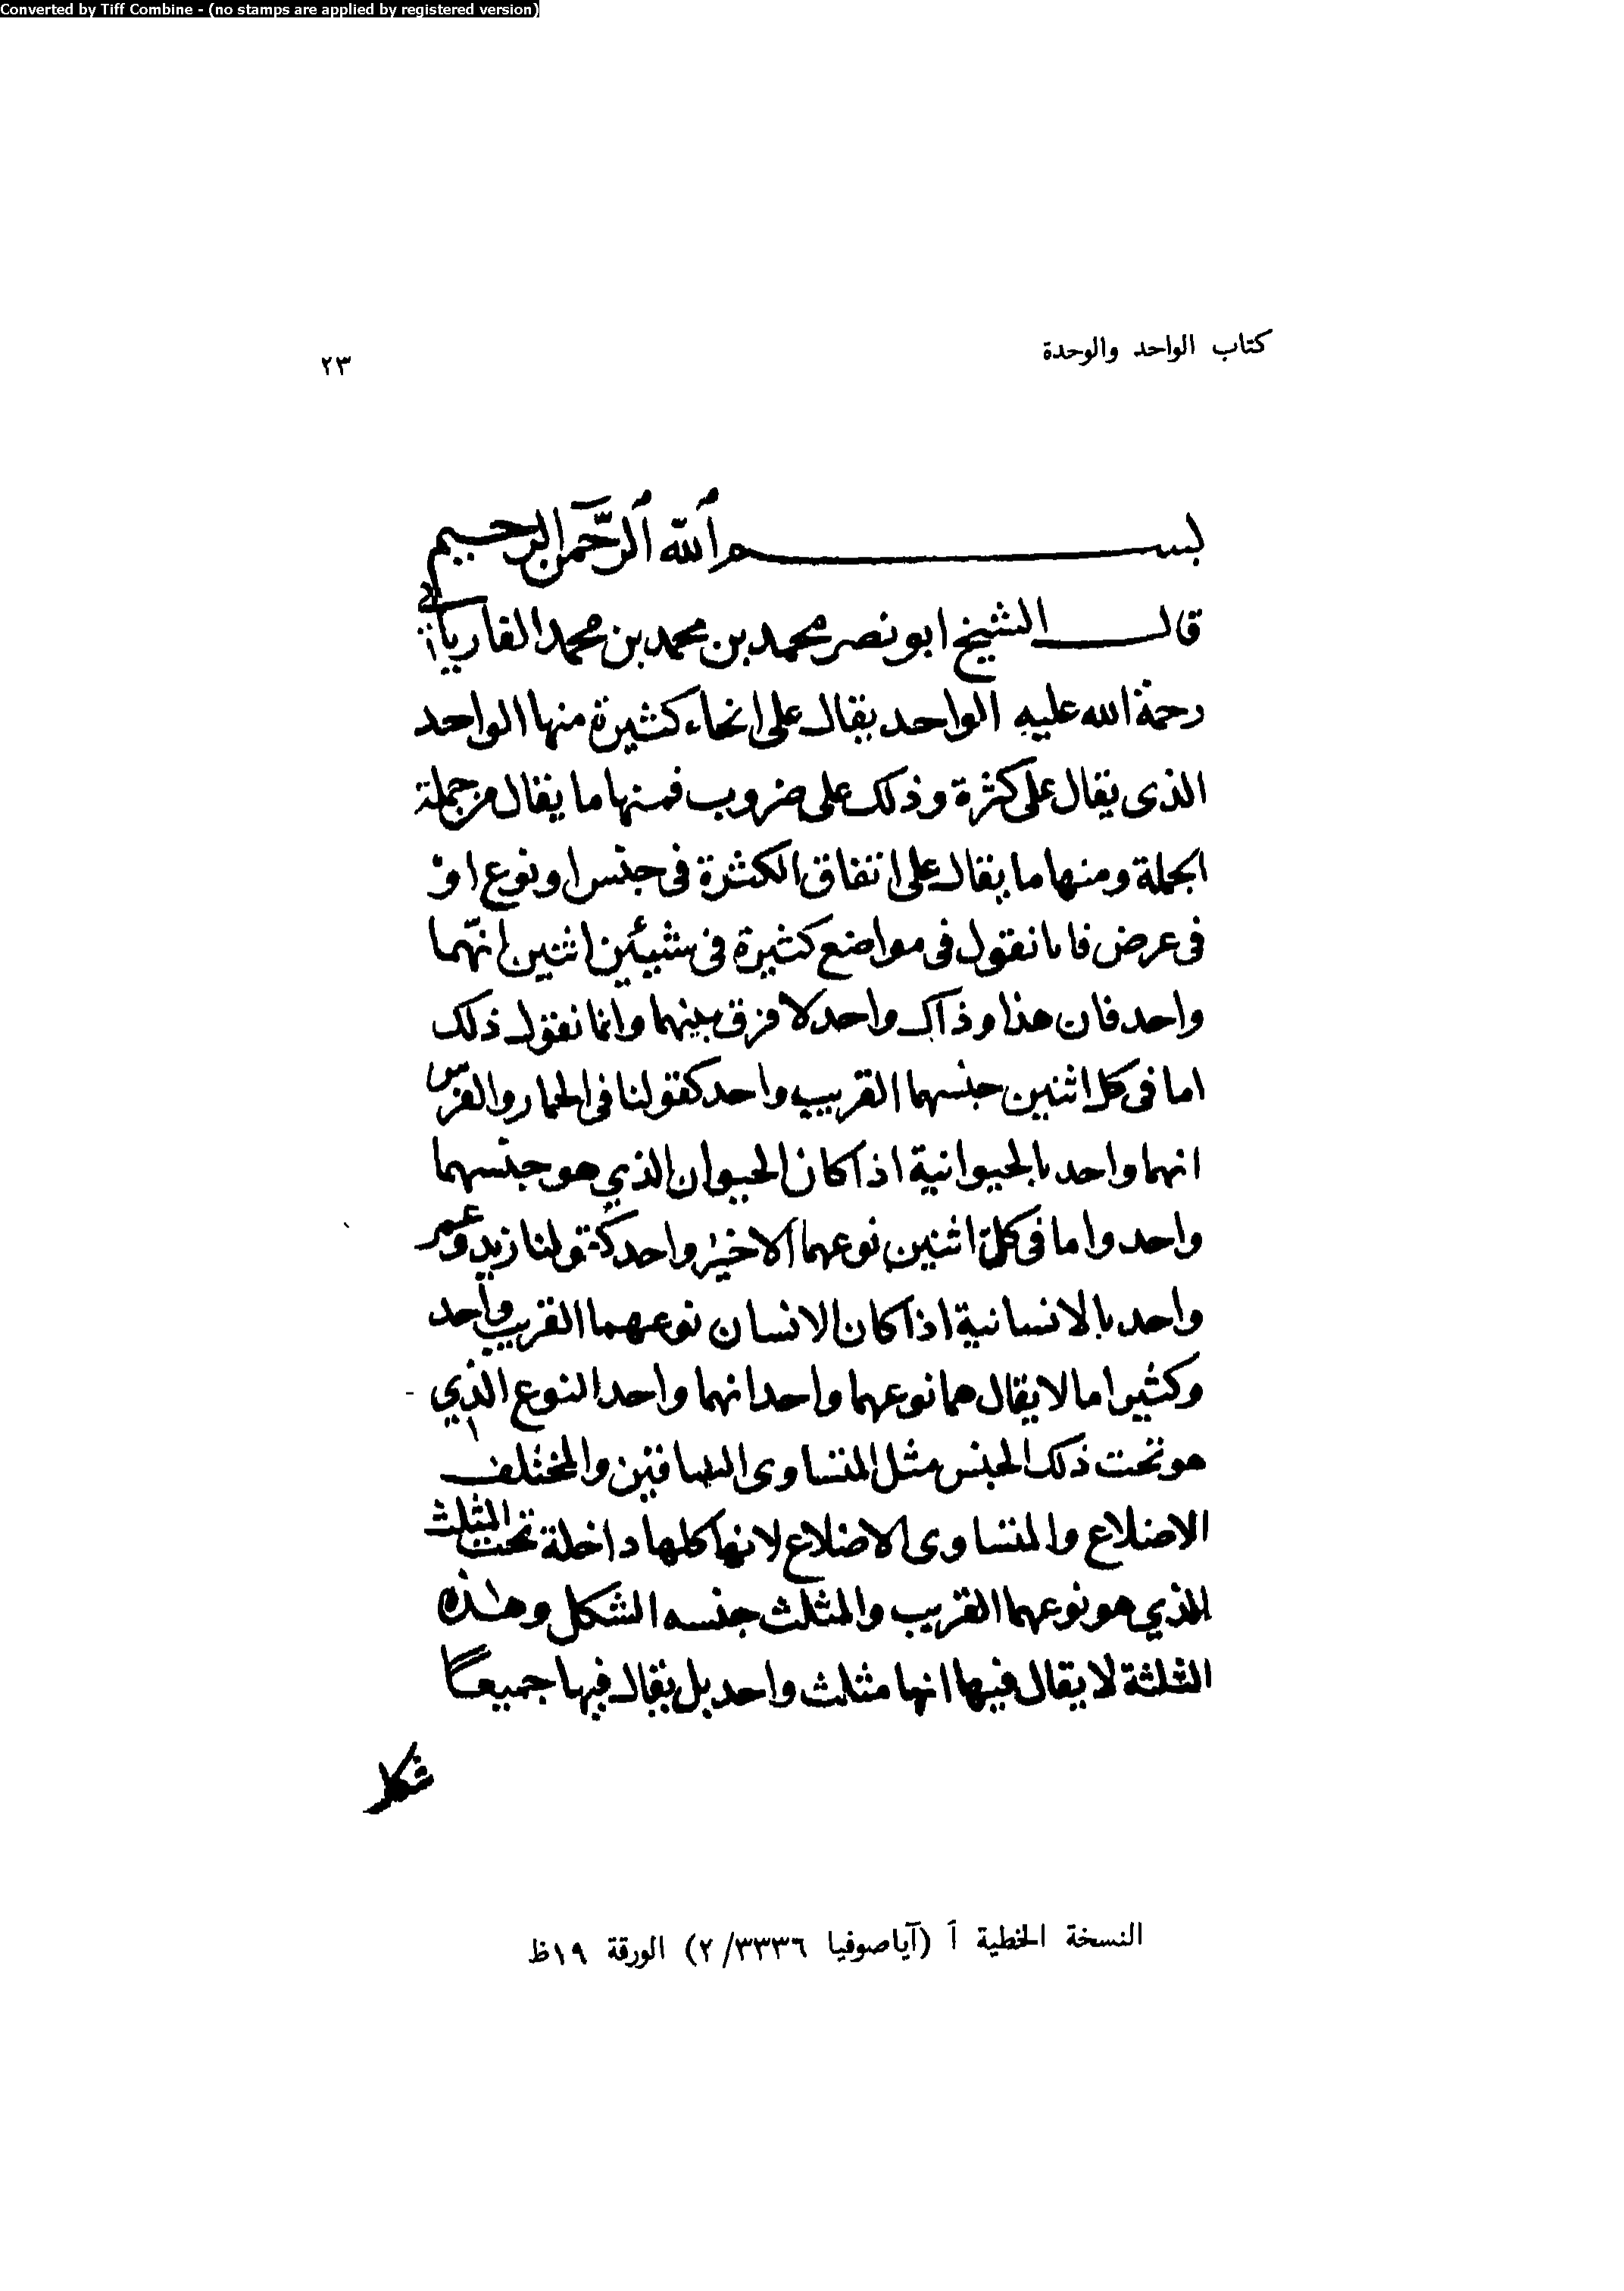 Converted by Tiff Combine - (no stamps are applied by registered version)
كتاب الواحد والوحدة
٢٣
بسم الله الرحمن الرحيم
قال الشيخ ابو نصر محمد بن محمد بن محمد الفاريابي
رحمة الله عليه الواحد يقال على انحاء كثيرة منها الواحد
الذى يقال على كثرة وذلك على ضروب فمنها ما يقال من جملة
الجملة ومنها ما يقال على اتفاق الكثرة فى جنس او نوع او
فى عرض فانا نقول فى مواضع كثيرة فى شيئين اثنين انهما
واحد فان هذا وذاك واحد لا فرق بينهما وانما نقول ذلك
اما فى كل اثنين جنسهما القريب واحد كقولنا فى الحمار والفرس
انهما واحد بالحيوانية اذا كان الحيوان الذي هو جنسهما
واحد واما فى كلّ اثنين نوعهما الاخير واحد كقولنا زيد وعمر
واحد بالانسانية اذا كان الانسان نوعهما القريب واحد
وكثيرا ما لا يقال هما نوعهما واحد انهما واحد النوع الذي
هو تحت ذلك الجنس مثل المتساوى الساقين والمختلف
الاضلاع والمتساوى الاضلاع لانها كلها داخلة تحت المثلث
الذي هو نوعهما القريب والمثلث جنسه الشكل وهذه
الثلثة لا يقال فيها انها مثلث واحد بل يقال فيها جميعًا
شكل
النسخة الخطية أ (آياصوفيا ٣٣٣٦/ ٢) الورقة ١٩ظ